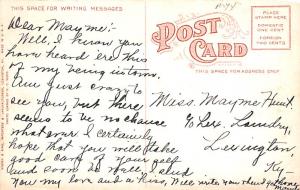 THIS SPACE FOR WRITING MESSAGES
Dear Mayme:-
Well, I know you
have heard ere this
of my being in town.
Am just crazy to
see you, but there
seems to be no chance
whatever I certainly
hope that you will take
good care of your self
and soon be well. Send
you my love and a kiss, Will write you
POST
CARD
THIS SPACE FOR ADDRESS ONLY
PLACE
STAMP HERE
DOMESTIC
ONE CENT
FOREIGN
TWO CENTS
Miss. Mayme Hunt.
c/o Lex. Laundry,
Lexington,
Ky.